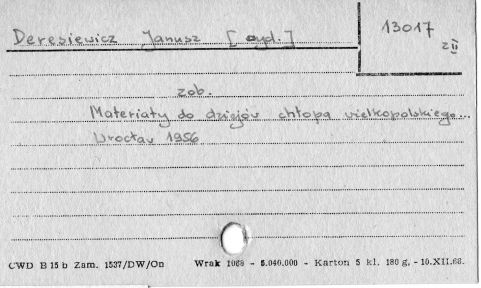 Deresiewicz Janusz [wyd.]
13017
z II
zob.
Materiały do dziejów chłopa wielkopolskiego...
Wrocław 1956
CWD B 15 b Zam. 1537/DW/On Wrak 1068 - 5.040.000 - Karton 5 kl. 180 g. - 10.XII.68.